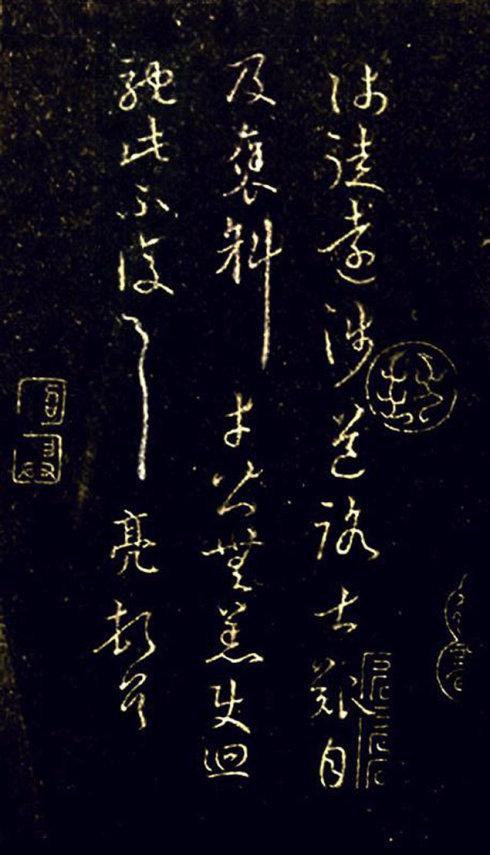 師徒遠涉道路甚艱自
及褒斜幸皆無恙使迴
馳此不復 亮頓首